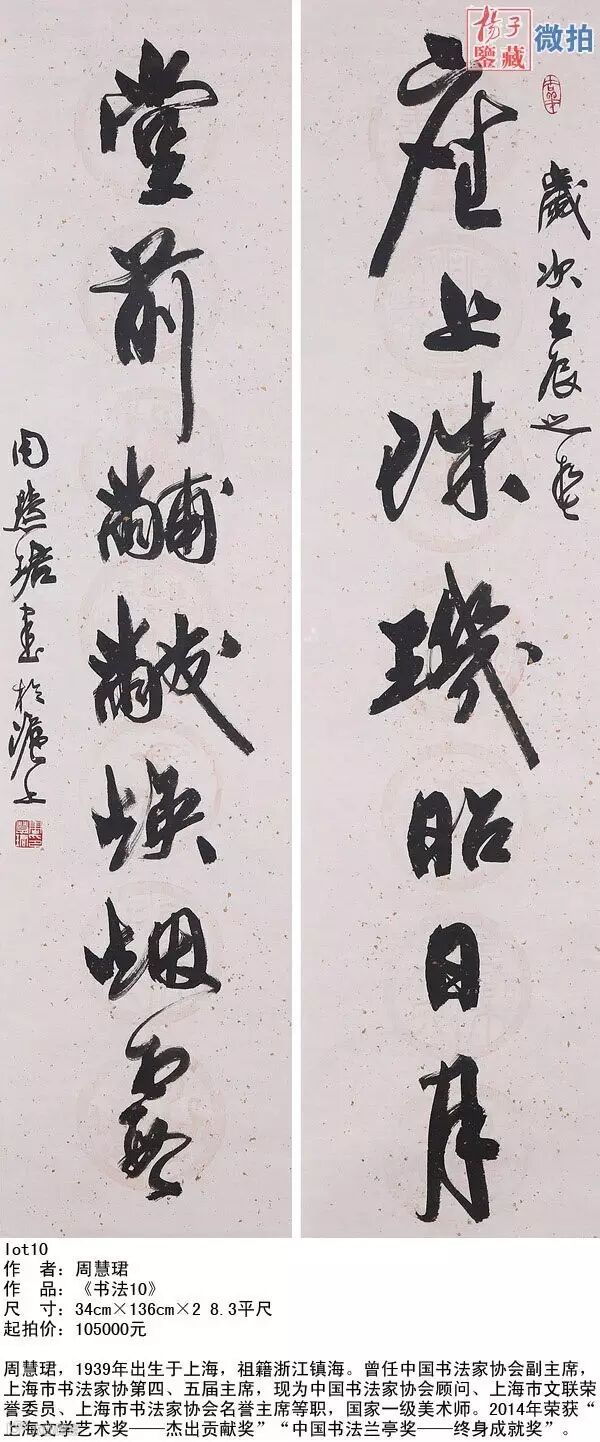 杨子
鑒藏
微拍
座上珠璣昭日月
歲次壬辰之春
堂前黼黻焕烟霞
周慧珺書於滬上
lot10
作 者：周慧珺
作 品：《书法10》
尺 寸：34cm×136cm×2 8.3平尺
起拍价：105000元
周慧珺，1939年出生于上海，祖籍浙江镇海。曾任中国书法家协会副主席，
上海市书法家协第四、五届主席，现为中国书法家协会顾问、上海市文联荣
誉委员、上海市书法家协会名誉主席等职，国家一级美术师。2014年荣获“
上海文学艺术奖——杰出贡献奖”“中国书法兰亭奖——终身成就奖”。